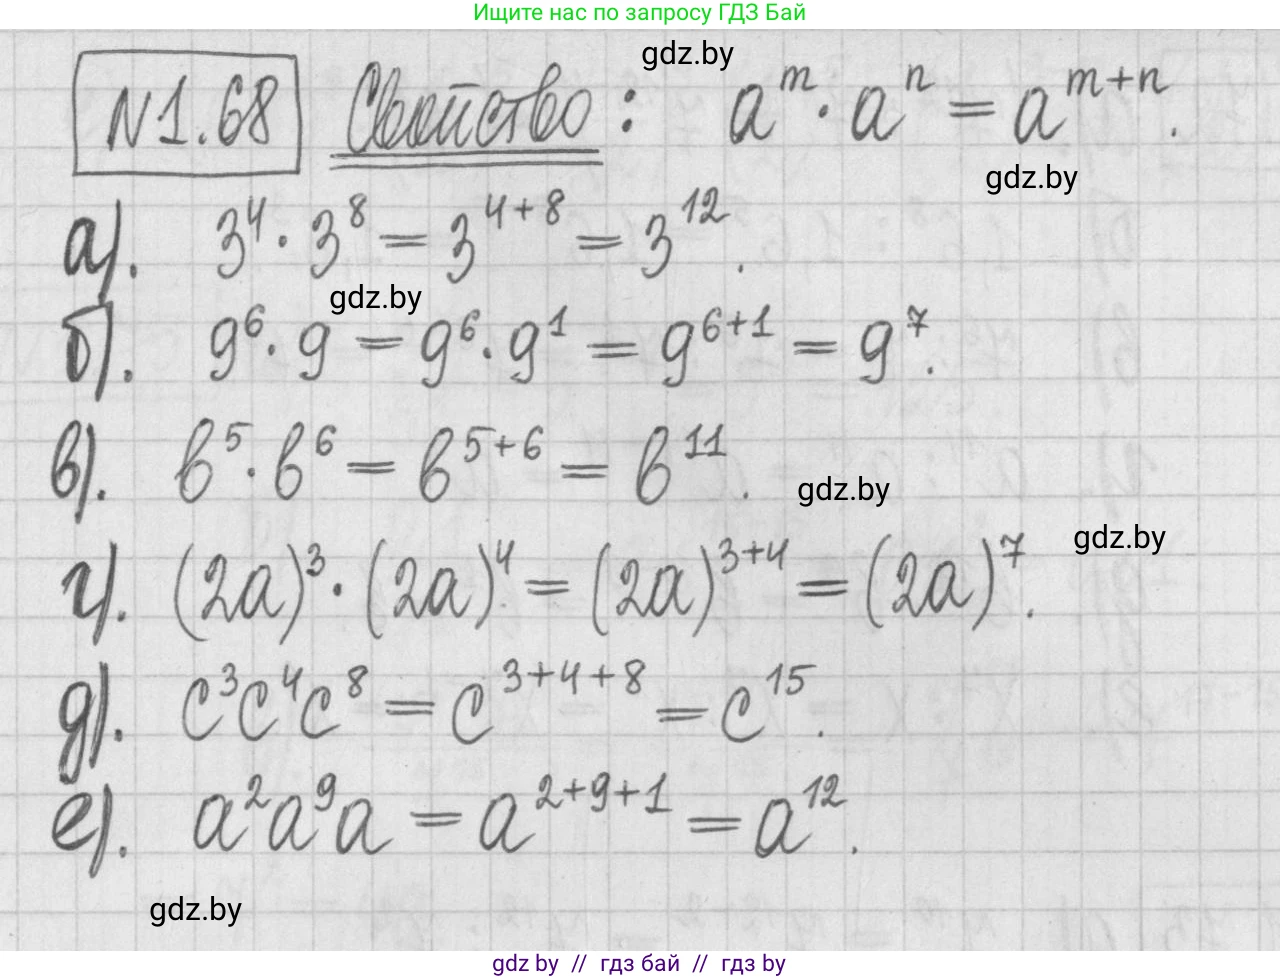 Ищите нас по запросу ГДЗ Бай
gdz.by
№1.68 Свойство: a^m · a^n = a^{m+n}.
gdz.by
а). 3^4 · 3^8 = 3^{4+8} = 3^{12}.
gdz.by
б). 9^6 · 9 = 9^6 · 9^1 = 9^{6+1} = 9^7.
в). b^5 · b^6 = b^{5+6} = b^{11}.
gdz.by
gdz.by
г). (2a)^3 · (2a)^4 = (2a)^{3+4} = (2a)^7.
д). c^3c^4c^8 = c^{3+4+8} = c^{15}.
е). a^2a^9a = a^{2+9+1} = a^{12}.
gdz.by
gdz by // гдз бай // гдз by